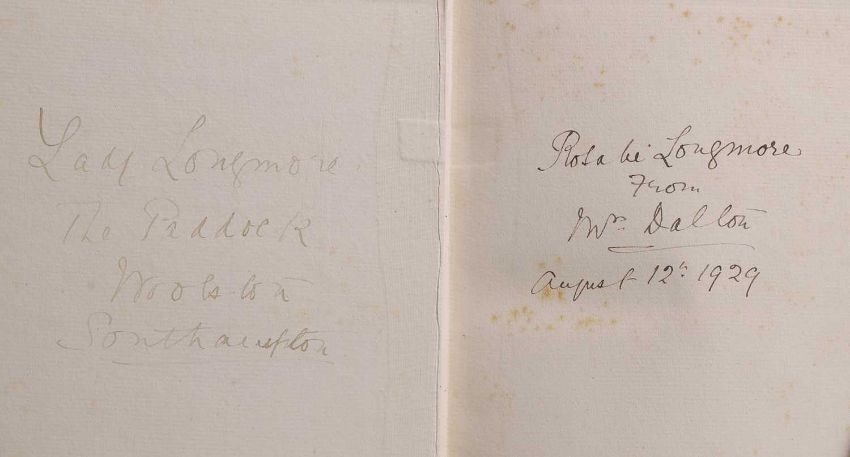 Lady Longmore.
The Paddock
Woolston
Southampton
Rosalie Longmore
From
Mrs Dalton
August 12th 1929